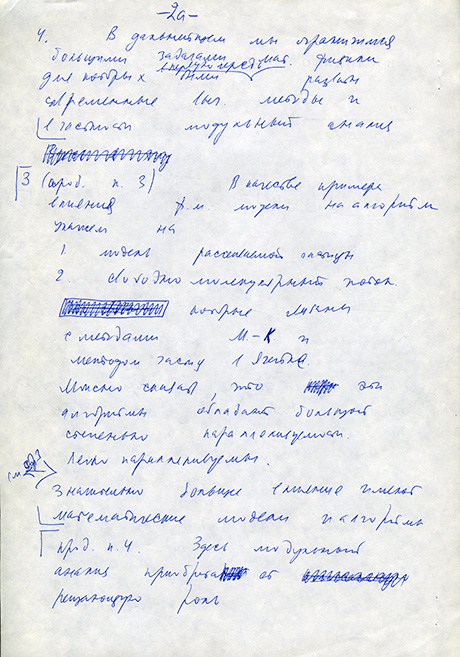 -2а-
4. В дальнейшем мы ограничимся
большими задачами мат. физики
в первую очередь
для которых были развиты
современные выч. методы и
в частности модульный анализ
3 (прод. п. 3) В качестве примера
влияния ф.м модели на алгоритм
укажем на
1. модель рассеиваемой частицы
2. свободно молекулярный поток.
которые связаны
с методами М-К и
методом частиц в ячейке.
Можно сказать, что эти
алгоритмы обладают большой
степенью параллелизуемости.
Легко параллелизуемы.
Значительно большее влияние имеют
математические модели и алгоритмы
прод. п. 4. Здесь модульный
анализ приобретает
решающую роль